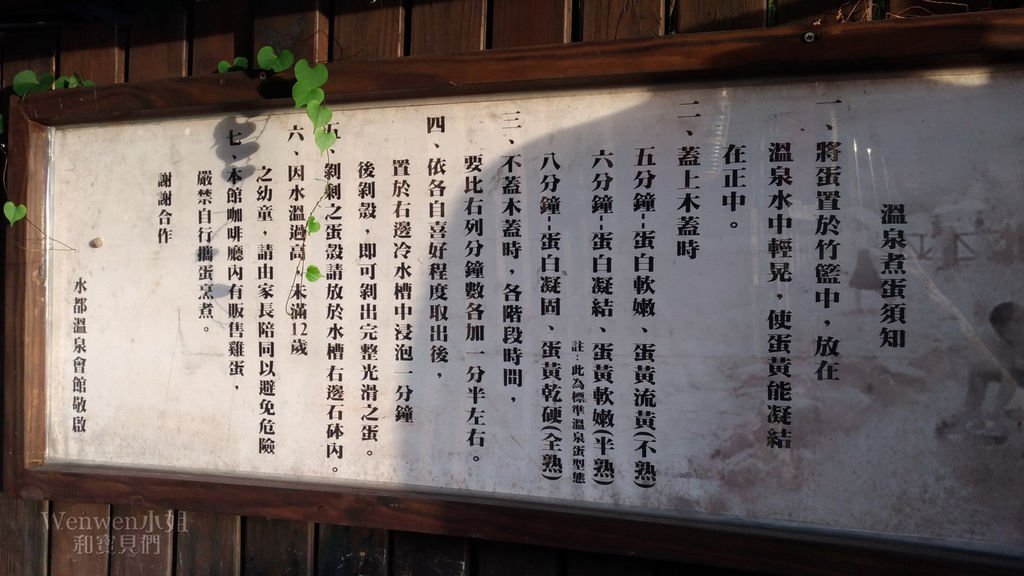 溫泉煮蛋須知
一、將蛋置於竹籃中，放在
溫泉水中輕晃，使蛋黃能凝結
在正中。
二、蓋上木蓋時
五分鐘-蛋白軟嫩、蛋黃流黃(不熟)
六分鐘-蛋白凝結、蛋黃軟嫩(半熟)
註：此為標準溫泉蛋型態
八分鐘-蛋白凝固、蛋黃乾硬(全熟)
三、不蓋木蓋時，各階段時間，
要比右列分鐘數各加一分半左右。
四、依各自喜好程度取出後，
置於右邊冷水槽中浸泡一分鐘
後剝殼，即可剝出完整光滑之蛋。
五、剝剩之蛋殼請放於水槽右邊石砵內。
六、因水溫過高，未滿12歲
之幼童，請由家長陪同以避免危險
七、本館咖啡廳內有販售雞蛋，
嚴禁自行攜蛋烹煮。
謝謝合作
水都溫泉會館敬啟
Wenwen小姐
和寶貝們